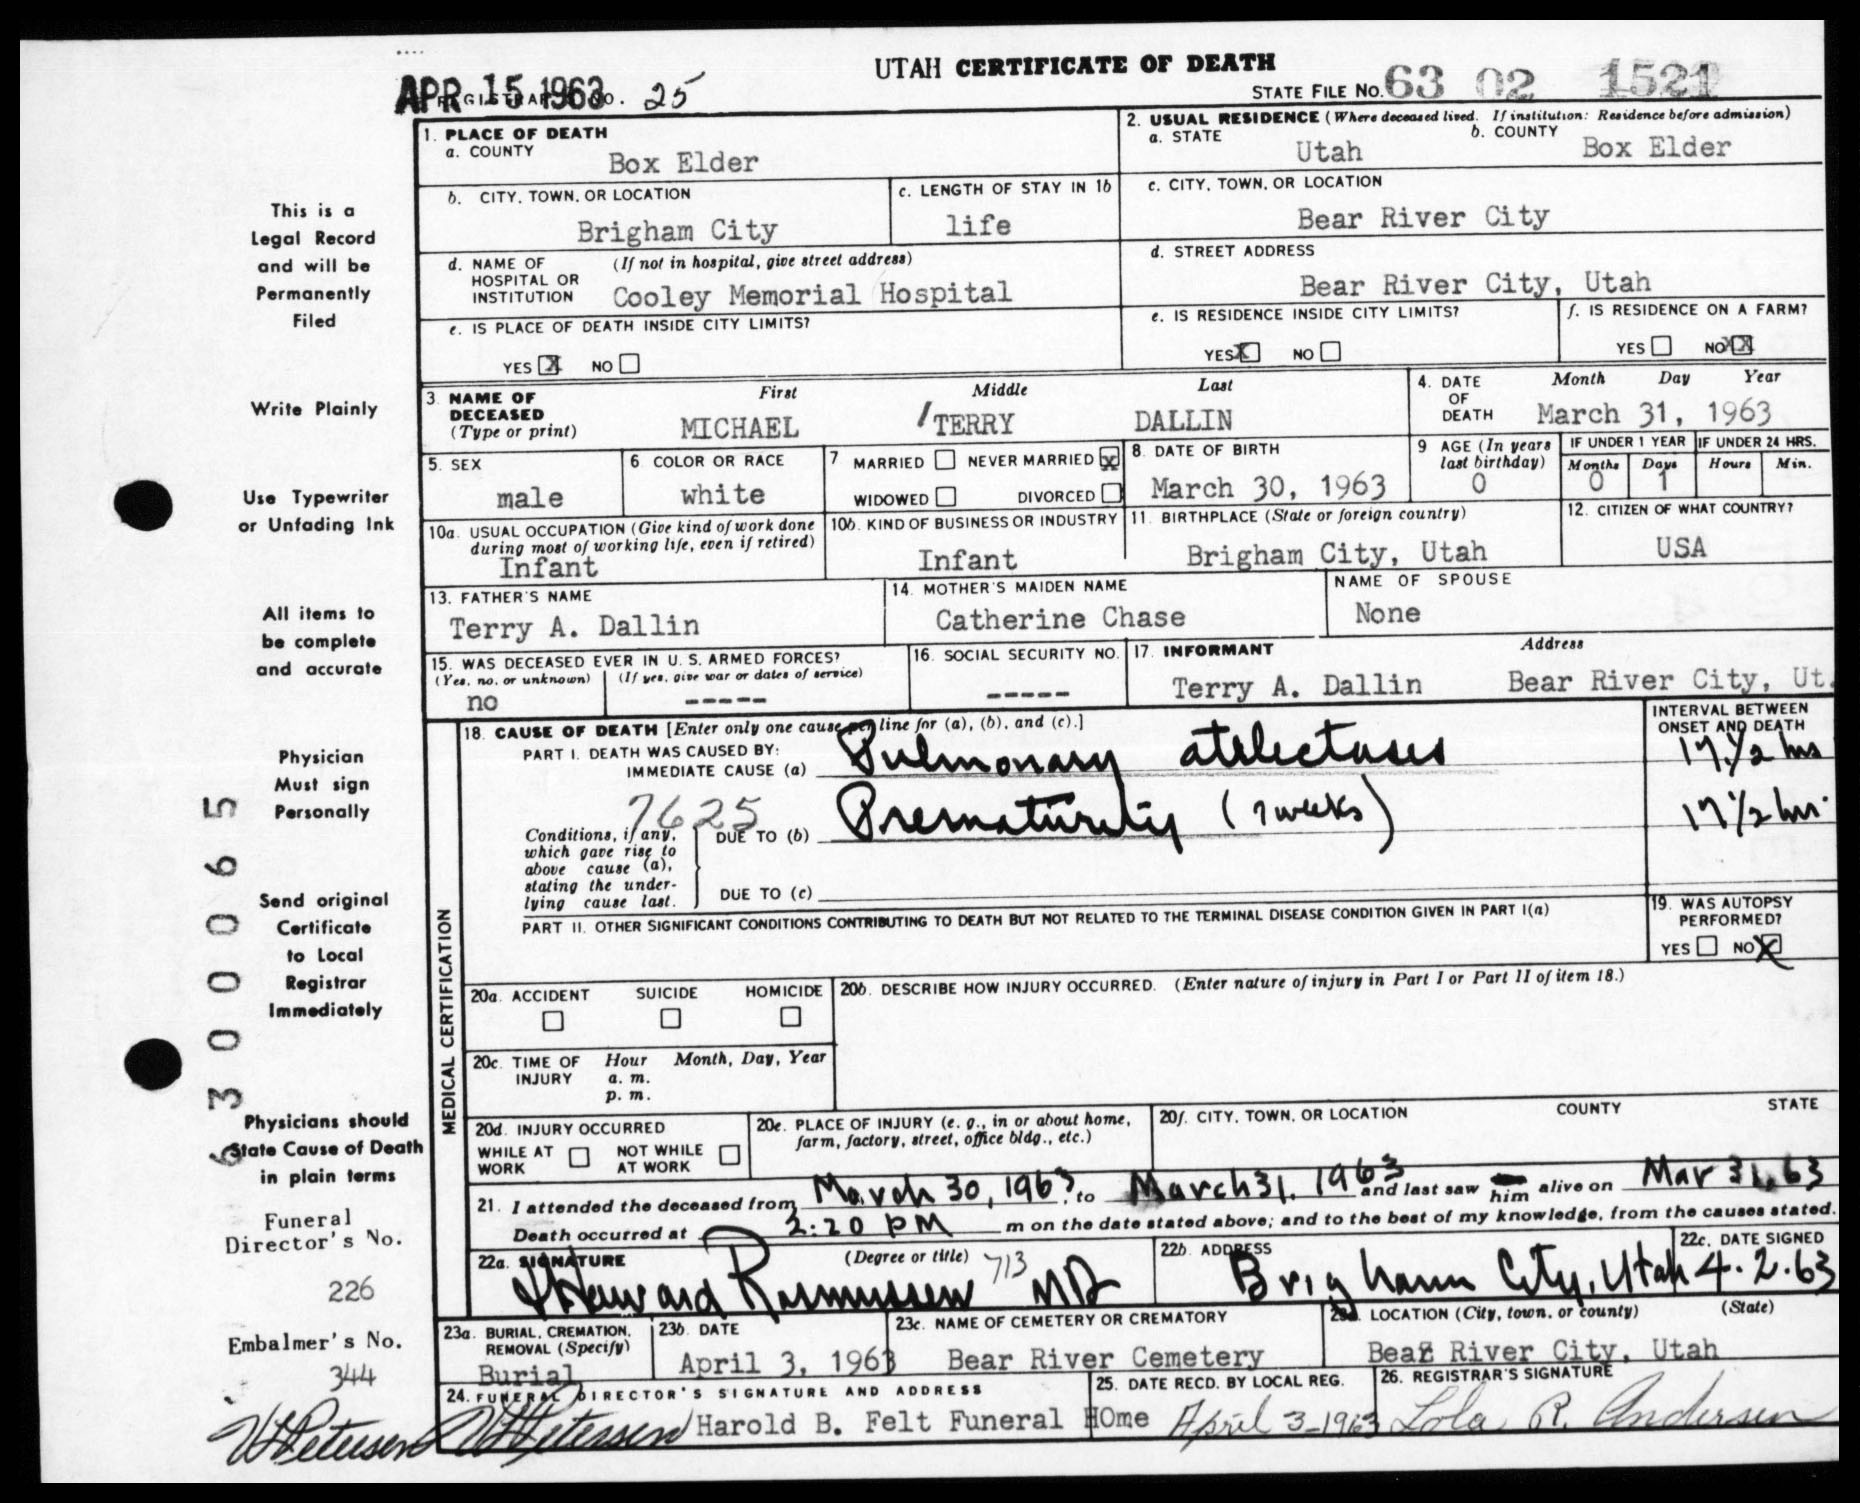 UTAH CERTIFICATE OF DEATH
APR 15 1963
REGISTRAR'S NO. 25
STATE FILE NO. 63 02 1521
1. PLACE OF DEATH
a. COUNTY
Box Elder
2. USUAL RESIDENCE (Where deceased lived. If institution: Residence before admission)
a. STATE
Utah
b. COUNTY
Box Elder
b. CITY, TOWN, OR LOCATION
Brigham City
c. LENGTH OF STAY IN 1b
life
c. CITY, TOWN, OR LOCATION
Bear River City
d. NAME OF HOSPITAL OR INSTITUTION
(If not in hospital, give street address)
Cooley Memorial Hospital
d. STREET ADDRESS
Bear River City, Utah
e. IS PLACE OF DEATH INSIDE CITY LIMITS?
YES X NO
e. IS RESIDENCE INSIDE CITY LIMITS?
YES X NO
f. IS RESIDENCE ON A FARM?
YES NO XX
3. NAME OF DECEASED (Type or print)
First Middle Last
MICHAEL / TERRY DALLIN
4. DATE OF DEATH
Month Day Year
March 31, 1963
5. SEX
male
6 COLOR OR RACE
white
7 MARRIED NEVER MARRIED X
WIDOWED DIVORCED
8. DATE OF BIRTH
March 30, 1963
9 AGE (In years last birthday)
0
IF UNDER 1 YEAR
Months Days
0 1
IF UNDER 24 HRS.
Hours Min.
10a. USUAL OCCUPATION (Give kind of work done during most of working life, even if retired)
Infant
10b. KIND OF BUSINESS OR INDUSTRY
Infant
11. BIRTHPLACE (State or foreign country)
Brigham City, Utah
12. CITIZEN OF WHAT COUNTRY?
USA
13. FATHER'S NAME
Terry A. Dallin
14. MOTHER'S MAIDEN NAME
Catherine Chase
NAME OF SPOUSE
None
15. WAS DECEASED EVER IN U. S. ARMED FORCES?
(Yes, no, or unknown) (If yes, give war or dates of service)
no -----
16. SOCIAL SECURITY NO.
-----
17. INFORMANT Address
Terry A. Dallin Bear River City, Ut.
MEDICAL CERTIFICATION
18. CAUSE OF DEATH [Enter only one cause per line for (a), (b), and (c).]
INTERVAL BETWEEN ONSET AND DEATH
PART I. DEATH WAS CAUSED BY:
IMMEDIATE CAUSE (a) Pulmonary atelectases 17 1/2 hrs
7625
Conditions, if any, which gave rise to above cause (a), stating the underlying cause last.
DUE TO (b) Prematurity (7 weeks) 17 1/2 hrs.
DUE TO (c)
PART II. OTHER SIGNIFICANT CONDITIONS CONTRIBUTING TO DEATH BUT NOT RELATED TO THE TERMINAL DISEASE CONDITION GIVEN IN PART I(a)
19. WAS AUTOPSY PERFORMED?
YES NO X
20a. ACCIDENT SUICIDE HOMICIDE
20b. DESCRIBE HOW INJURY OCCURRED. (Enter nature of injury in Part I or Part II of item 18.)
20c. TIME OF INJURY
Hour Month, Day, Year
a. m.
p. m.
20d. INJURY OCCURRED
WHILE AT WORK NOT WHILE AT WORK
20e. PLACE OF INJURY (e. g., in or about home, farm, factory, street, office bldg., etc.)
20f. CITY, TOWN, OR LOCATION COUNTY STATE
21. I attended the deceased from March 30, 1963, to March 31, 1963 and last saw him alive on Mar 31, 63
Death occurred at 2:20 PM m on the date stated above; and to the best of my knowledge, from the causes stated.
22a. SIGNATURE (Degree or title)
Howard Rasmussen 713 MD
22b. ADDRESS
Brigham City, Utah
22c. DATE SIGNED
4.2.63
23a. BURIAL, CREMATION, REMOVAL (Specify)
Burial
23b. DATE
April 3, 1963
23c. NAME OF CEMETERY OR CREMATORY
Bear River Cemetery
23d. LOCATION (City, town, or county) (State)
Bear River City, Utah
24. FUNERAL DIRECTOR'S SIGNATURE AND ADDRESS
Petersen Petersen Harold B. Felt Funeral HOme
25. DATE RECD. BY LOCAL REG.
April 3-1963
26. REGISTRAR'S SIGNATURE
Lola R. Andersen
This is a
Legal Record
and will be
Permanently
Filed
Write Plainly
Use Typewriter
or Unfading Ink
All items to
be complete
and accurate
Physician
Must sign
Personally
Send original
Certificate
to Local
Registrar
Immediately
Physicians should
State Cause of Death
in plain terms
Funeral
Director's No.
226
Embalmer's No.
344
6300065